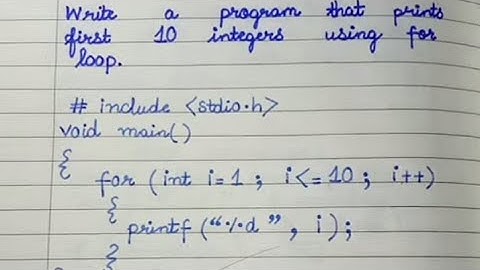 Write a program that prints
first 10 integers using for
loop.
# include <stdio.h>
void main()
{
for (int i=1 ; i<=10 ; i++)
{
printf (“%d ” , i ) ;
}